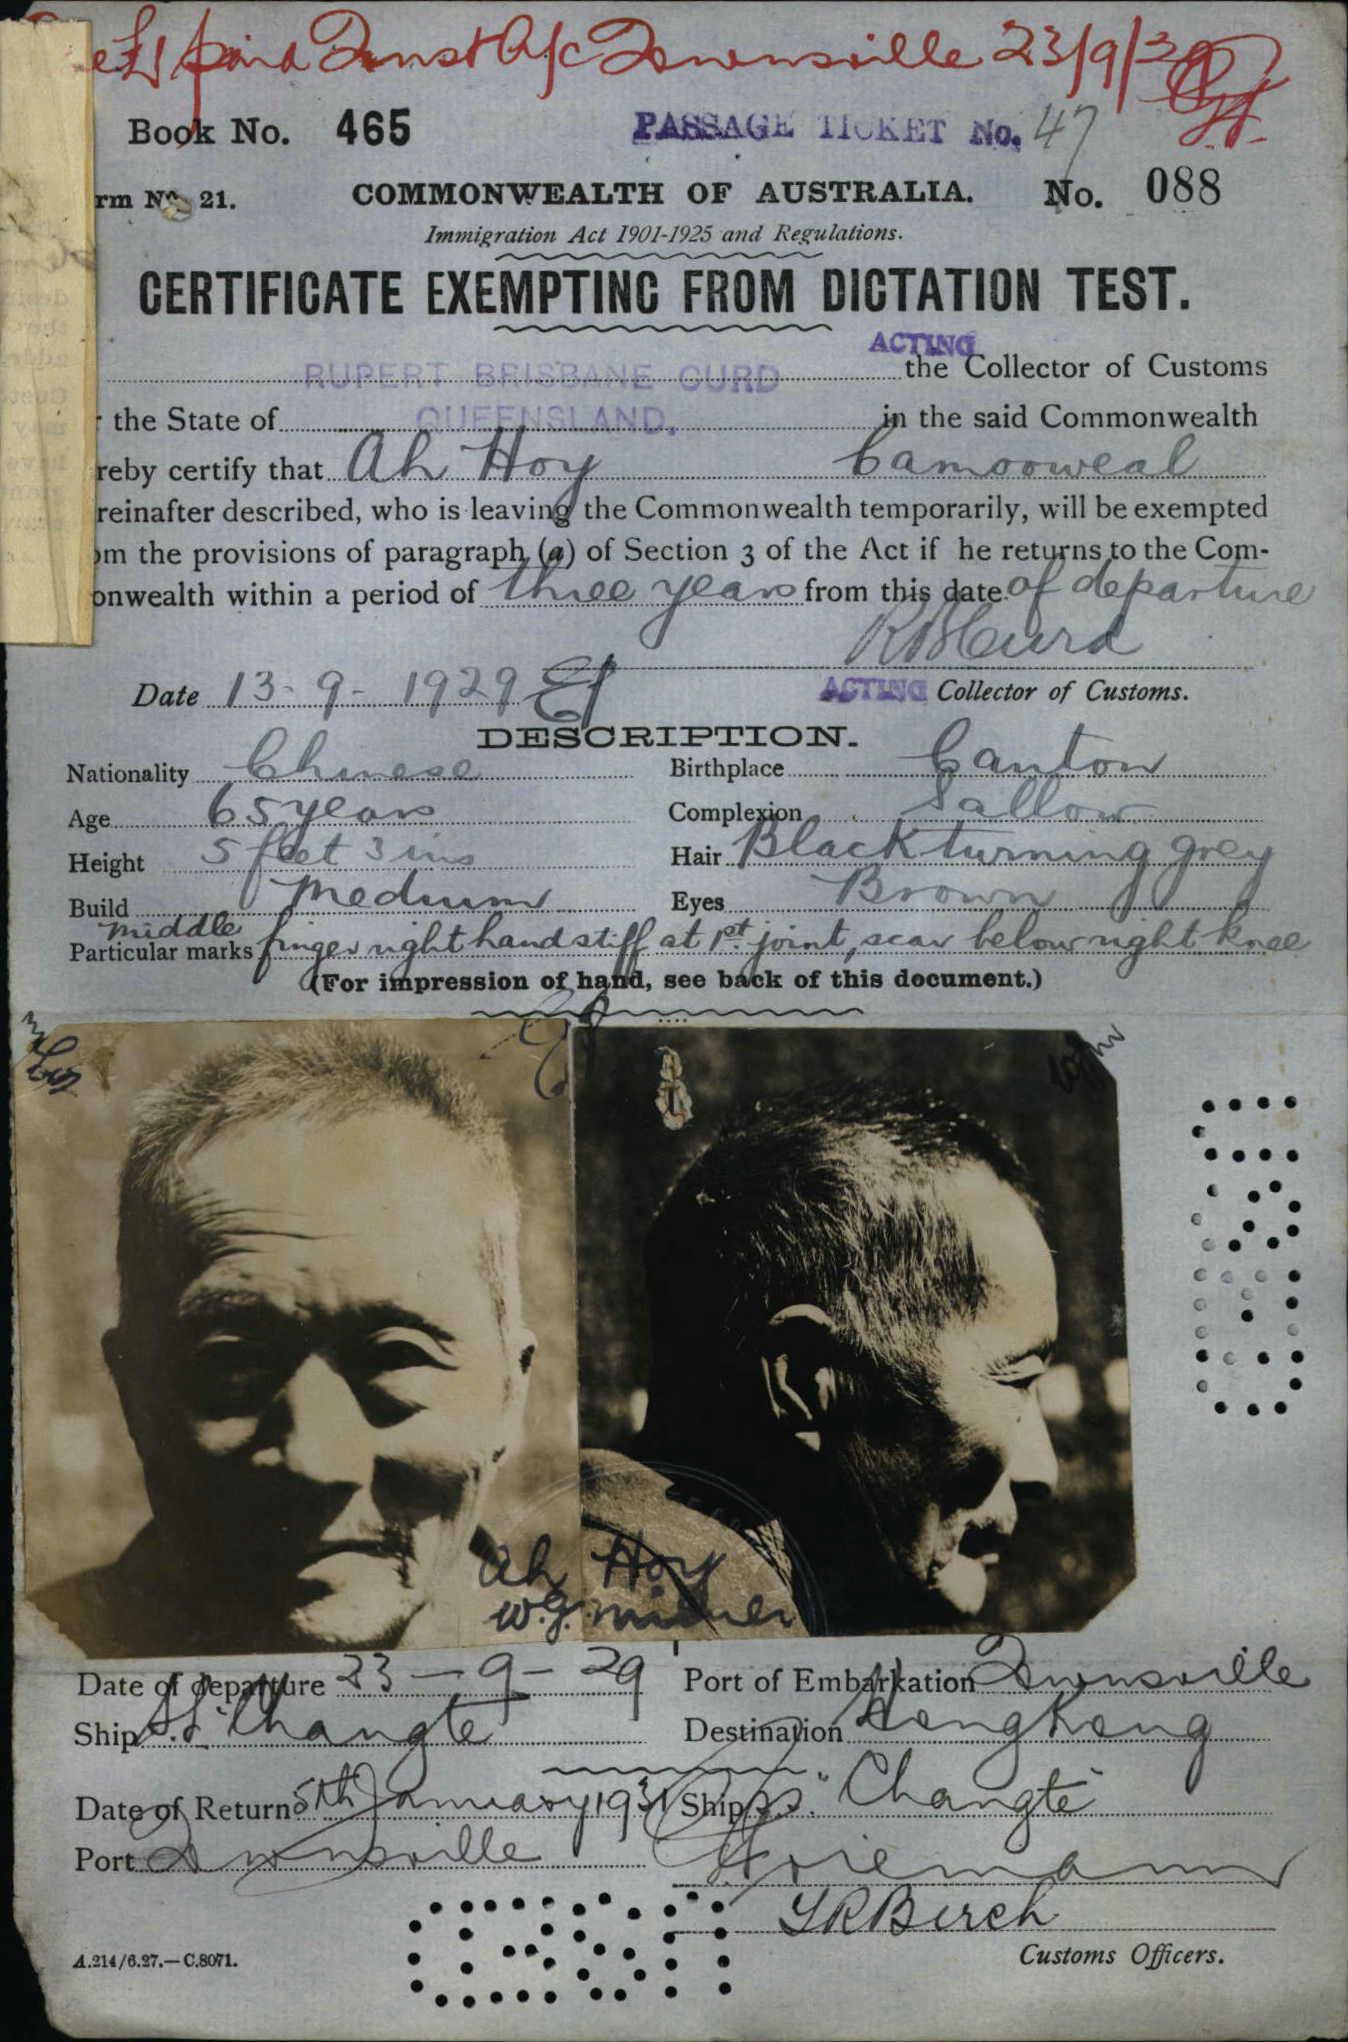 paid Trust A/c Townsville 23/9/29
Book No. 465 PASSAGE TICKET No. 47
rm No. 21. COMMONWEALTH OF AUSTRALIA. No. 088
Immigration Act 1901-1925 and Regulations.
CERTIFICATE EXEMPTING FROM DICTATION TEST.
ACTING
RUPERT BRISBANE CURD the Collector of Customs
r the State of QUEENSLAND. in the said Commonwealth
reby certify that Ah Hoy Camooweal
reinafter described, who is leaving the Commonwealth temporarily, will be exempted
om the provisions of paragraph (a) of Section 3 of the Act if he returns to the Com-
onwealth within a period of three years from this date of departure
R B Curd
Date 13-9-1929 ACTING Collector of Customs.
DESCRIPTION.
Nationality Chinese Birthplace Canton
Age 65 years Complexion Sallow
Height 5 feet 3 ins Hair Black turning grey
Build Medium Eyes Brown
middle
Particular marks finger right hand stiff at 1st joint, scar below right knee
(For impression of hand, see back of this document.)
Ah Hoy
W.J. Milner
Date of departure 23-9-29 Port of Embarkation Townsville
Ship S.S. "Changte" Destination Hong Kong
Date of Return 5th January 1931 Ship S.S. "Changte"
Port Townsville
Birch
A.214/6.27.—C.8071. Customs Officers.